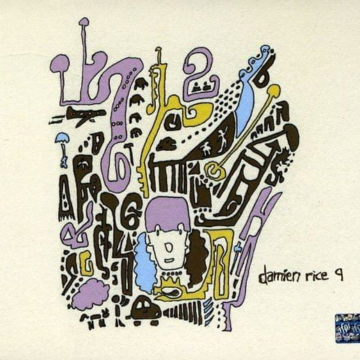 damien rice 9